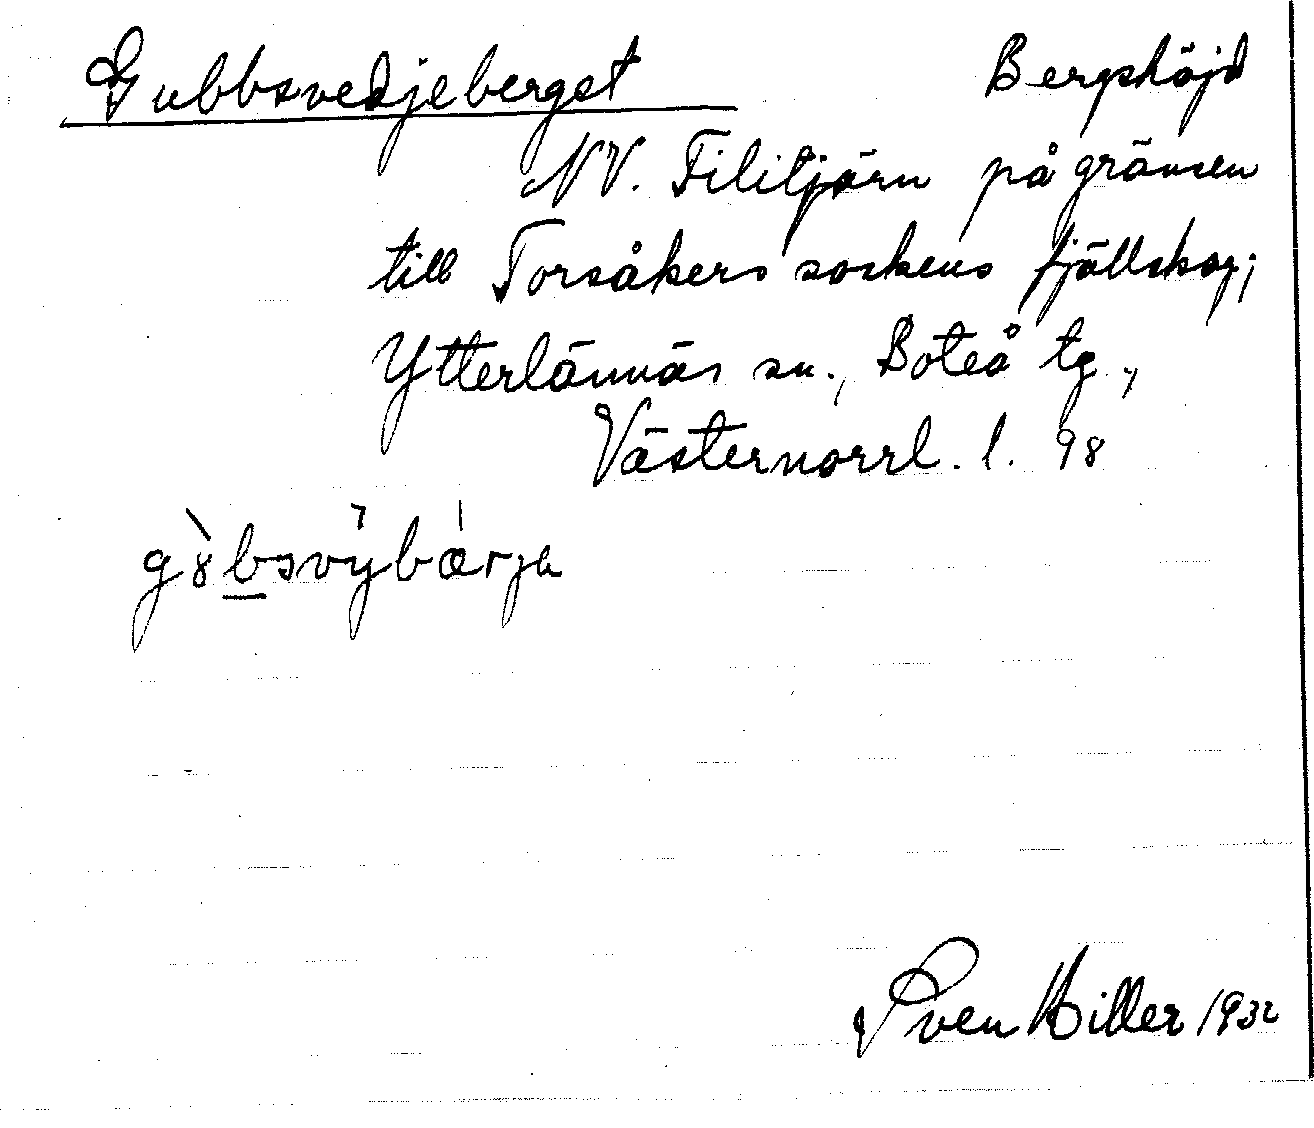 Gubbsvedjeberget Bergshöjd
NV. Filitjärn på gränsen
till Torsåkers sockens fjällskog;
Ytterlännäs sn., Boteå tg.,
Västernorrl. l. 98
Sven Hiller 1932